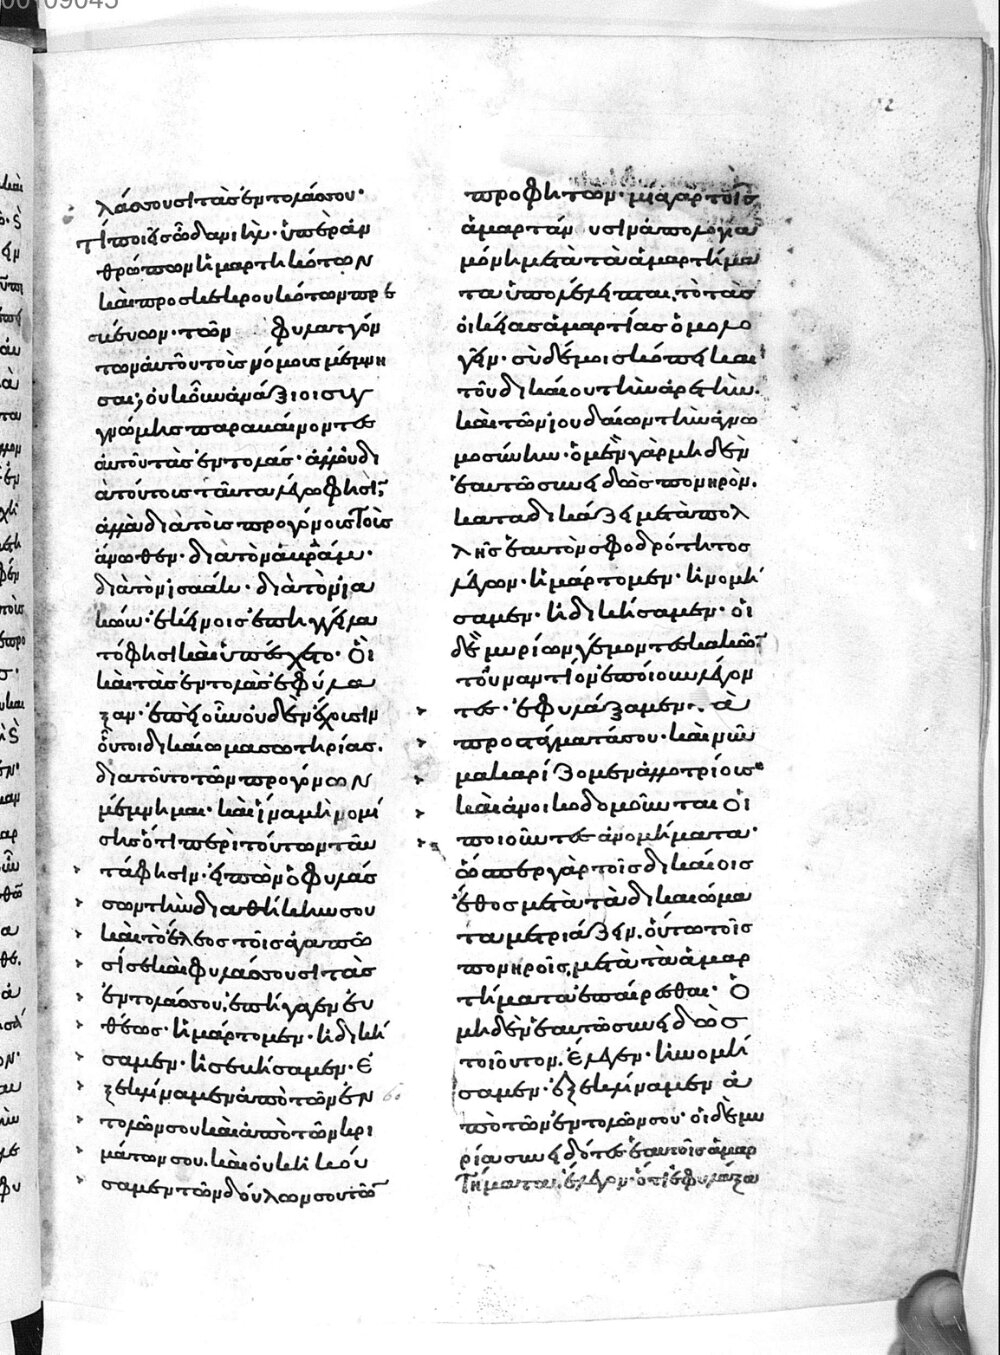 λάσσουσι τὰς ἐντολάς σου·
τί ποιεῖς ὦ δανιήλ· ὑπὲρ ἀν
θρώπων ἡμαρτηκότων
καὶ προσκεκρουκότων πρε
σβεύων· τῶν φυλαττόν
των αὐτοῦ τοὺς νόμους μέμνη
σαι; οὐκοῦν ἀνάξιοι συγ
γνώμης παραβαίνοντες
αὐτοῦ τὰς ἐντολάς· ἀλλ' οὐ δι
ὰ τούτους ταῦτα λέγω φησὶ;
ἀλλὰ διὰ τοὺς προγόνους τοὺς
ἄνωθεν· διὰ τὸν ἀβραάμ·
διὰ τὸν ἰσαάκ· διὰ τὸν ἰα
κώβ· ἐκείνοις ἐπηγγείλα
τό φησι καὶ ὑπέσχετο· οἳ
καὶ τὰς ἐντολὰς ἐφύλα
ξαν· ἐπεὶ οὖν οὐδὲν ἔχουσιν
οὗτοι δικαίωμα σωτηρίας·
διὰ τοῦτο τῶν προγόνων
μέμνημαι· καὶ ἵνα μὴ νομί
σῃς ὅτι περὶ τούτων ταῦ
τά φησιν· εἰπὼν ὁ φυλάσ
σων τὴν διαθήκην σου
καὶ τὸ ἔλεος τοῖς ἀγαπῶ
σί σε καὶ φυλάσσουσι τὰς
ἐντολάς σου, ἐπήγαγεν εὐ
θέως· ἡμάρτομεν· ἠδική
σαμεν· ἠσεβήσαμεν· ἐ
ξεκλίναμεν ἀπὸ τῶν ἐν
τολῶν σου καὶ ἀπὸ τῶν κρι
μάτων σου. καὶ οὐκ εἰσηκού
σαμεν τῶν δούλων σου τῶν
προφητῶν· μία γὰρ τοῖς
ἁμαρτάνουσιν ἀπολογία
μόνη μετὰ τὰ ἁμαρτήμα
τα ὑπολέλειπται, τὸ τὰς
οἰκείας ἁμαρτίας ὁμολο
γεῖν· σὺ δέ μοι σκόπει καὶ
τοῦ δικαίου τὴν ἀρετὴν.
καὶ τῶν ἰουδαίων τὴν ἀγνω
μοσύνην· ὁ μὲν γὰρ μηδὲν
ἑαυτῶ συνειδὼς πονηρὸν.
καταδικάζει μετὰ πολ
λῆς ἑαυτὸν σφοδρότητος
λέγων· ἡμάρτομεν· ἠνομή
σαμεν· ἠδικήσαμεν· οἱ
δὲ μυρίων γέμοντες κακῶν
τοὐναντίον ἐποίουν λέγον
τες· ἐφυλάξαμεν τὰ
προστάγματά σου· καὶ νῦν
μακαρίζομεν ἀλλοτρίους
καὶ ἀνοικοδομοῦνται οἱ
ποιοῦντες ἀνομήματα·
ὥσπερ γὰρ τοῖς δικαίοις
ἔθος μετὰ τὰ δικαιώμα
τα μετριάζειν, οὕτω τοῖς
πονηροῖς, μετὰ τὰ ἁμαρ
τήματα ἐπαίρεσθαι· ὁ
μηδὲν ἑαυτῶ συνειδὼς
τοιοῦτον. ἔλεγεν· ἠνομή
σαμεν· ἐξεκλίναμεν ἀ
πὸ τῶν ἐντολῶν σου· οἱ δὲ μυ
ρία συνειδότες ἑαυτοῖς ἁμαρ
τήματα, ἔλεγον· ὅτι ἐφυλάξα